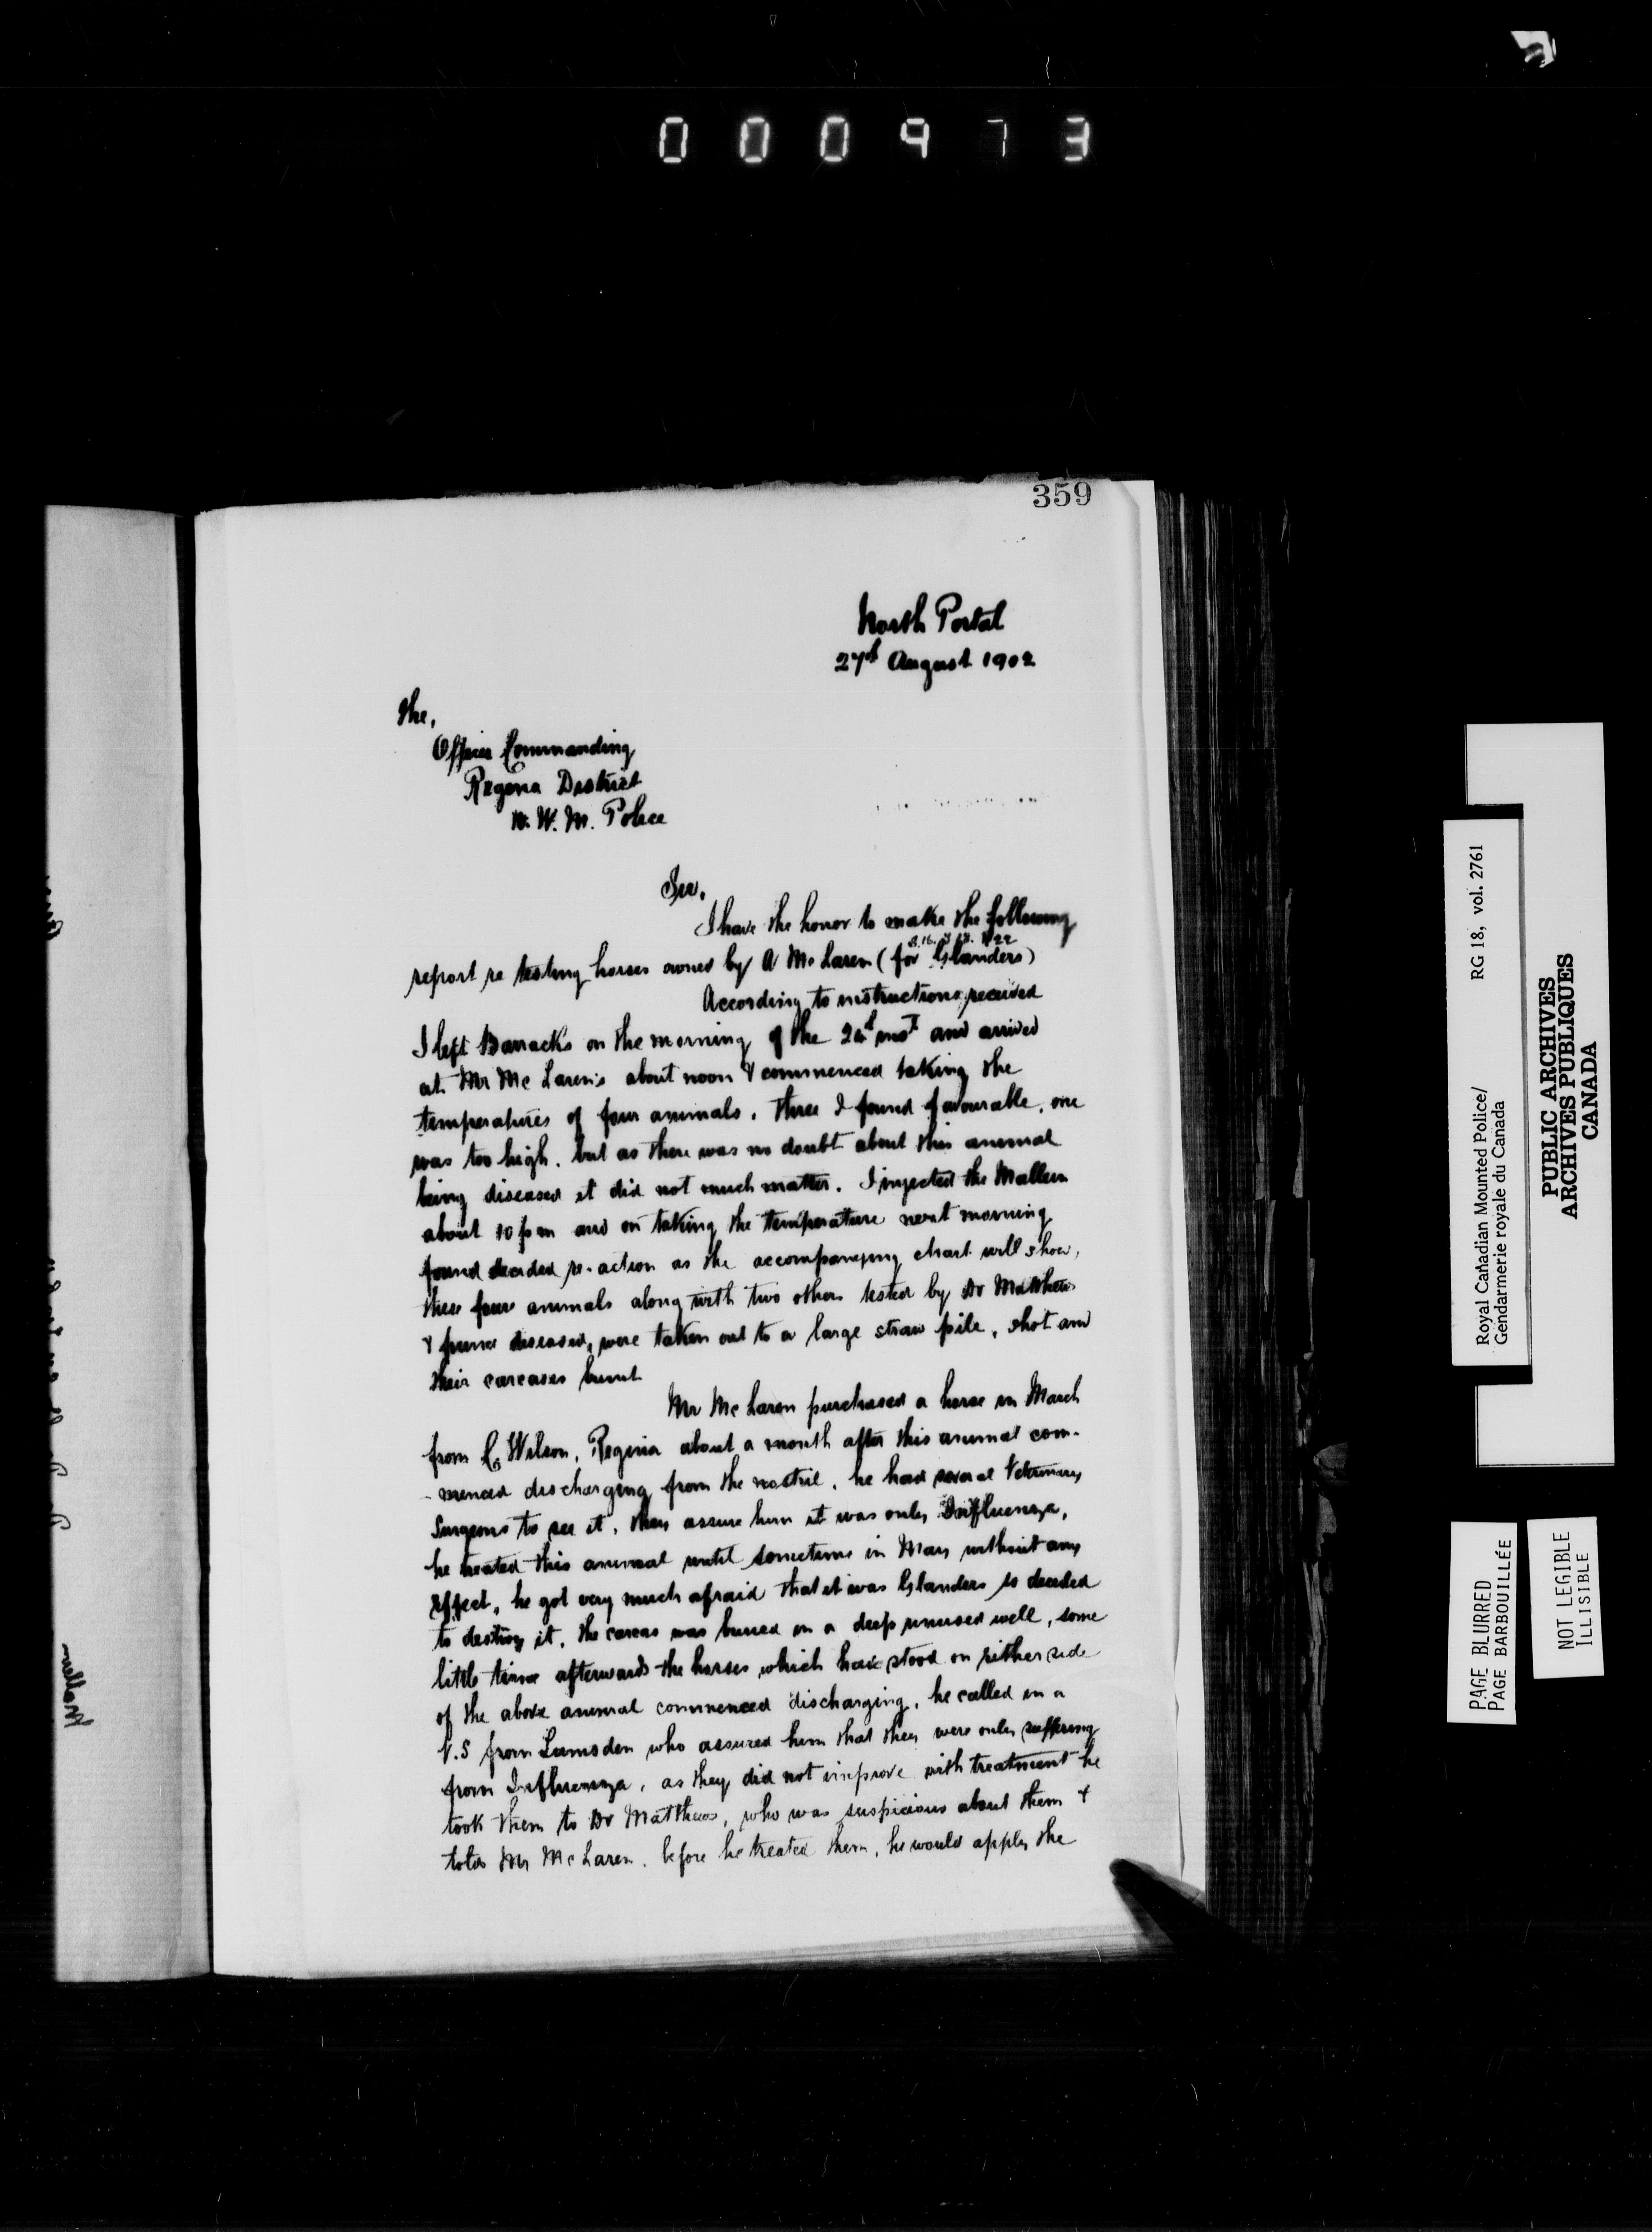 000973
359
North Portal
27th August 1902
The,
Officer Commanding
Regina District
N. W. M. Police
Sir,
I have the honor to make the following
report re testing horses owned by A McLaren (for Glanders)
According to instructions received
I left Barracks on the morning of the inst and arrived
at Mr McLaren's about noon & commenced taking the
temperatures of four animals. Three I found favourable, one
was too high. but as there was no doubt about this animal
being diseased it did not much matter. I injected the Mallein
about 10 pm and on taking the temperature next morning
found decided re-action as the accompanying chart will show,
these four animals along with two others tested by Dr Matthews
& found diseased, were taken out to a large straw pile, shot and
their carcases burnt
Mr McLaren purchased a horse in March
from C. Wilson, Regina about a month after this animal com-
-menced discharging from the nostril. he had several Veterinary
Surgeons to see it, they assure him it was only Influenza,
he treated this animal until sometime in May without any
effect, he got very much afraid that it was Glanders so decided
to destroy it. the carcas was buried in a deep unused well, some
little time afterwards the horses which had stood on either side
of the above animal commenced discharging, he called in a
V.S from Lumsden who assured him that they were only suffering
from Influenza, as they did not improve with treatment he
took them to Dr Matthews, who was suspicious about them &
told Mr McLaren, before he treated them, he would apply the
Mallein
Royal Canadian Mounted Police/ RG 18, vol. 2761
Gendarmerie royale du Canada
PUBLIC ARCHIVES
ARCHIVES PUBLIQUES
CANADA
PAGE BLURRED
PAGE BARBOUILLÉE
NOT LEGIBLE
ILLISIBLE